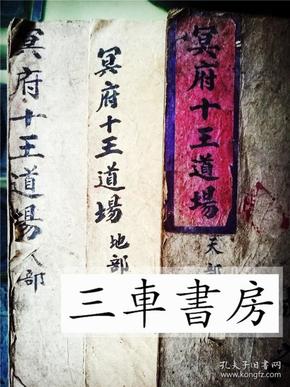 冥府十王道場
天部
冥府十王道場
地部
冥府十王道場
人部
三車書房
孔夫子旧书网
www.kongfz.com